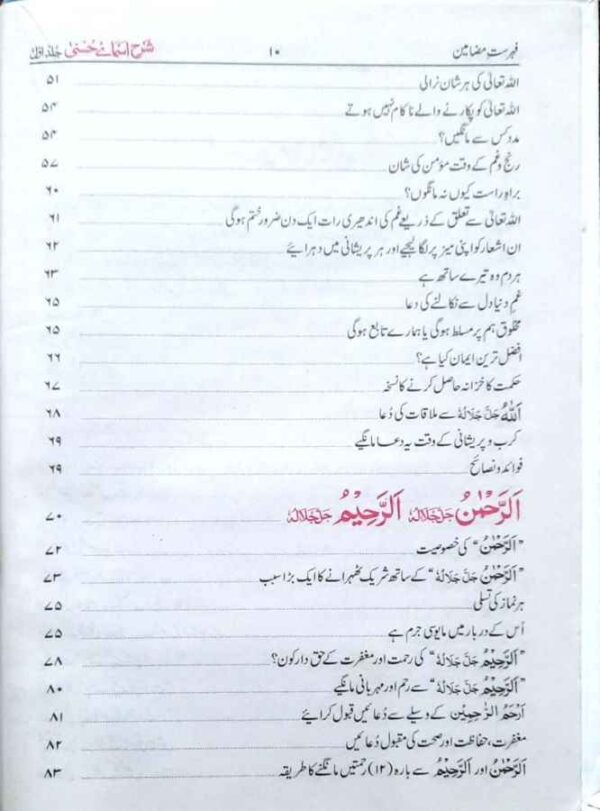 فہرست مضامین ۱۰ شرح اسمائے حسنیٰ جلد اول
اللہ تعالیٰ کی ہر شان نرالی ۵۱
اللہ تعالیٰ کو پکارنے والے ناکام نہیں ہوتے ۵۴
مدد کس سے مانگیں؟ ۵۴
رنج و غم کے وقت مؤمن کی شان ۵۷
براہ راست کیوں نہ مانگوں؟ ۶۰
اللہ تعالیٰ سے تعلق کے ذریعے غم کی اندھیری رات ایک دن ضرور ختم ہوگی ۶۱
ان اشعار کو اپنی میز پر لگا لیجیے اور ہر پریشانی میں دہرائیے ۶۲
ہر دم وہ تیرے ساتھ ہے ۶۳
غم دنیا دل سے نکالنے کی دعا ۶۵
مخلوق ہم پر مسلط ہوگی یا ہمارے تابع ہوگی ۶۵
افضل ترین ایمان کیا ہے؟ ۶۶
حکمت کا خزانہ حاصل کرنے کا نسخہ ۶۷
اَللّٰهُ جَلَّ جَلَالُهٗ سے ملاقات کی دُعا ۶۸
کرب و پریشانی کے وقت یہ دعا مانگیے ۶۹
فوائد و نصائح ۶۹
اَلرَّحْمٰنُ جَلَّ جَلَالُهٗ اَلرَّحِيْمُ جَلَّ جَلَالُهٗ ۷۰
”اَلرَّحْمٰنُ“ کی خصوصیت ۷۲
”اَلرَّحْمٰنُ جَلَّ جَلَالُهٗ“ کے ساتھ شریک ٹھہرانے کا ایک بڑا سبب ۷۳
ہر نماز کی تسلی ۷۵
اُس کے دربار میں مایوسی جرم ہے ۷۵
”اَلرَّحِيْمُ جَلَّ جَلَالُهٗ“ کی رحمت اور مغفرت کے حق دار کون؟ ۷۸
”اَلرَّحِيْمُ جَلَّ جَلَالُهٗ“ سے رحم اور مہربانی مانگیے ۸۰
اَرْحَمُ الرّٰحِمِيْن کے وسیلے سے دُعائیں قبول کرائیے ۸۱
مغفرت، حفاظت اور صحت کی مقبول دُعائیں ۸۲
اَلرَّحْمٰنُ اور اَلرَّحِيْمُ سے بارہ (۱۲) رحمتیں مانگنے کا طریقہ ۸۳